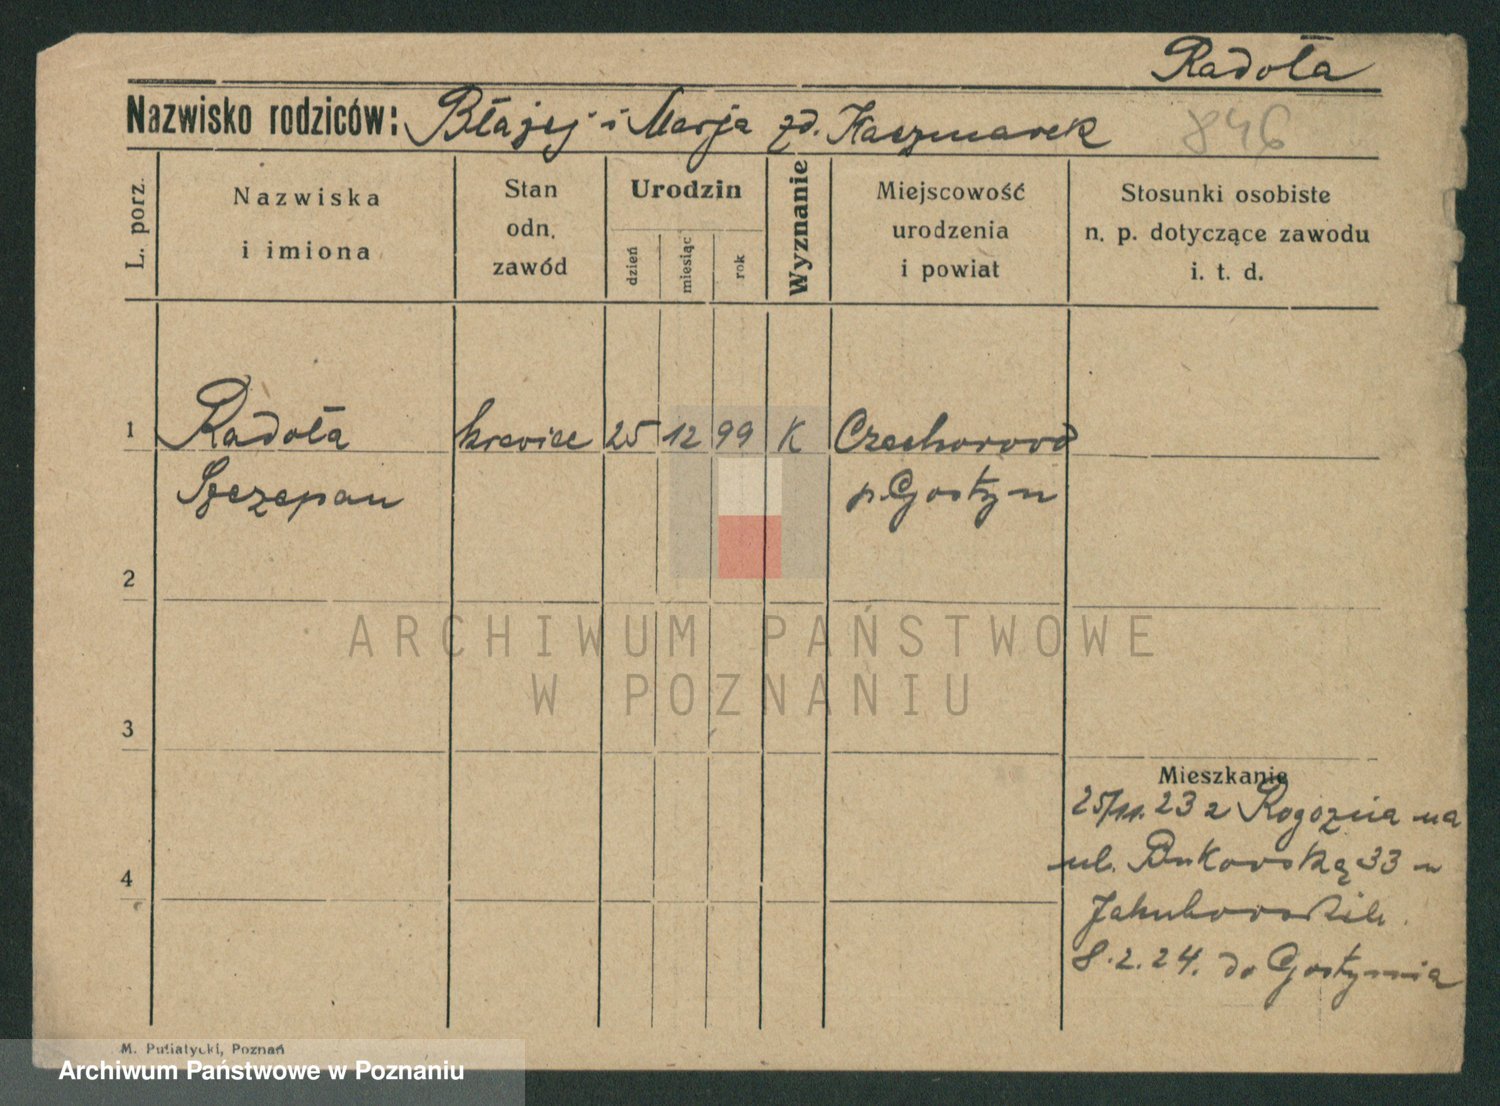 Radoła
Nazwisko rodziców: Błażej i Marja zd. Kaczmarek
846
L. porz.
Nazwiska
i imiona
Stan
odn.
zawód
Urodzin
dzień
miesiąc
rok
Wyznanie
Miejscowość
urodzenia
i powiat
Stosunki osobiste
n. p. dotyczące zawodu
i. t. d.
1 Radoła krawiec 25 12 99 K Czachorowo
Szczepan p. Gostyn
2
ARCHIWUM PAŃSTWOWE
W POZNANIU
3
Mieszkanie
25/11. 23 z Rogoźna na
ul. Bukowską 33 u
Jakubowskich.
4
8.2.24. do Gostynia
M. Putiatycki, Poznań
Archiwum Państwowe w Poznaniu